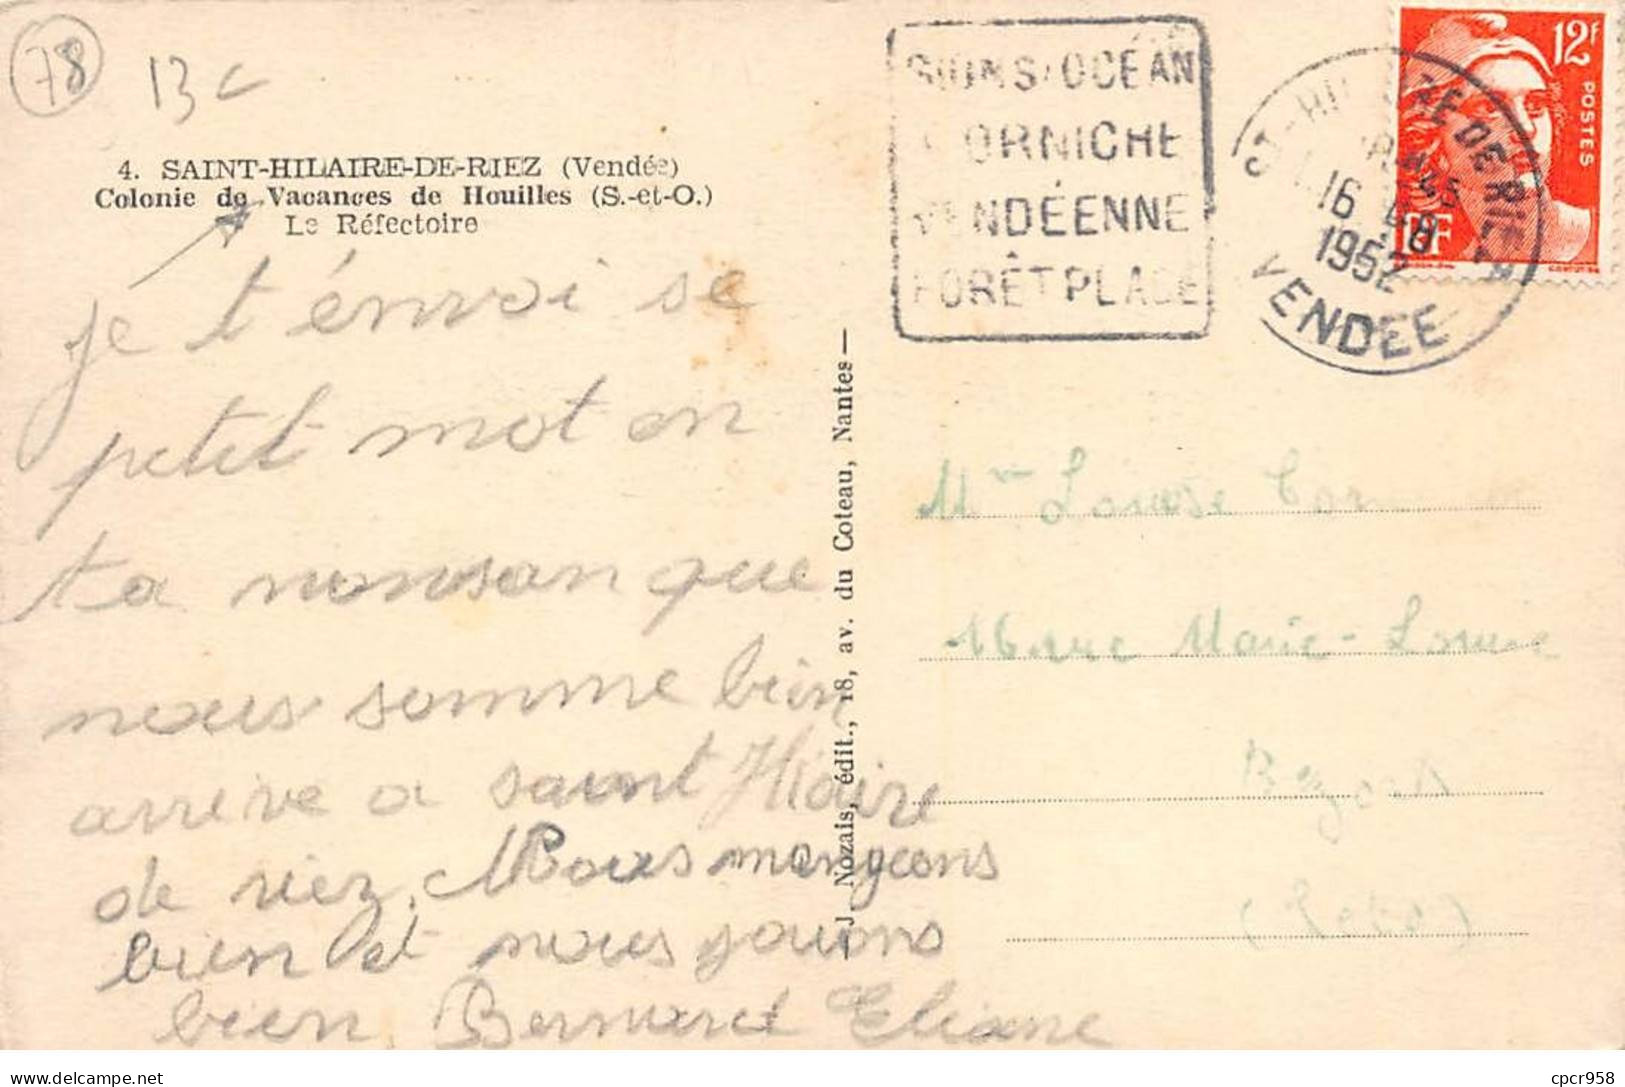 78
13c
4. SAINT-HILAIRE-DE-RIEZ (Vendée)
Colonie de Vacances de Houilles (S.-et-O.)
Le Réfectoire
je t'énvoi se
petit mot en
ta nonsan que
nous somme bien
arrive a saint Hilaire
de riez. Nous mangeons
bien et nous jouons
bien Bernard Eliane
J. Nozais, édit., 18, av. du Coteau, Nantes —
SIONS/OCÉAN
CORNICHE
VENDÉENNE
FORÊT PLAGE
ST-HILAIRE DE RIEZ
16
1952
VENDEE
12F
POSTES
RF
Louise
Marie-Louise
Bezons
(S et O)
cpcr958